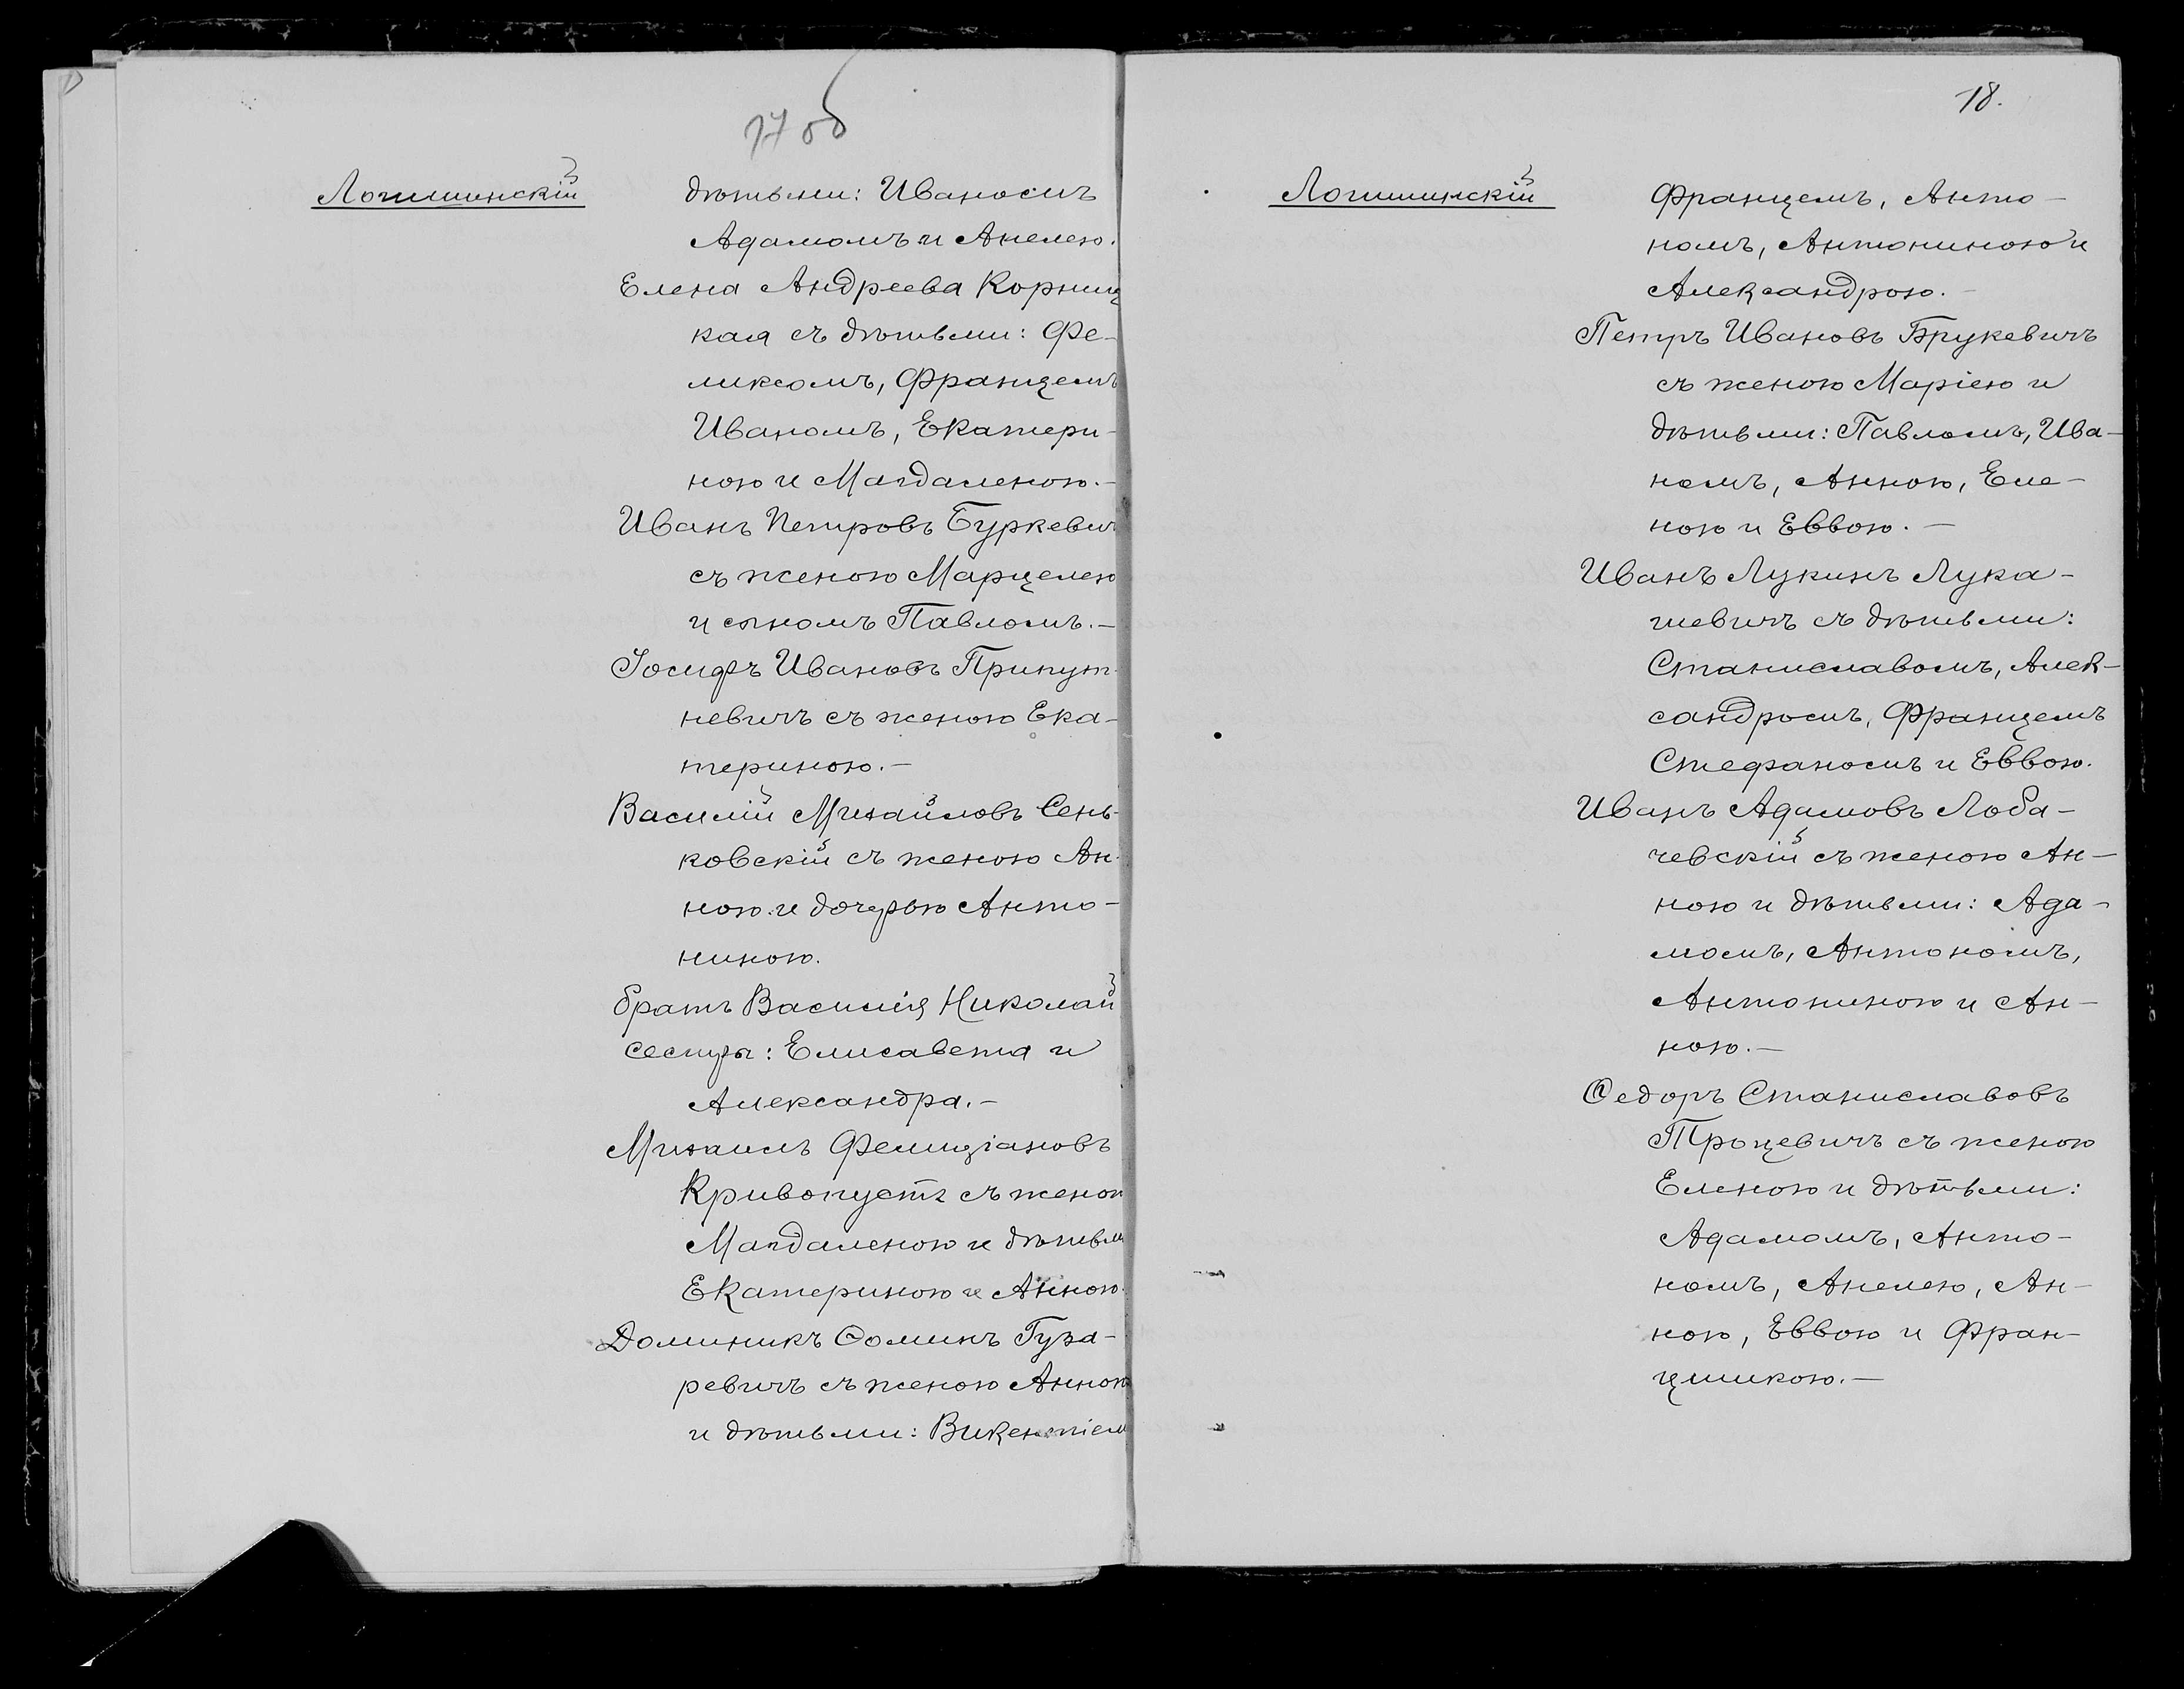 17 об
Логишинскій
дѣтьми: Иваномъ
Адамомъ и Анелею.
Елена Андреева Корниц
кая съ дѣтьми: Фе-
ликсомъ, Францемъ
Иваномъ, Екатери-
ною и Магдаленою.-
Иванъ Петровъ Буркевич
съ женою Марцелею
и сыномъ Павломъ.-
Іосифъ Ивановъ Припут-
невичъ съ женою Ека-
териною.-
Василій Михайловъ Сень-
ковскій съ женою Ан-
ною и дочерью Анто-
ниною.
братъ Василія Николай
сестры: Елисавета и
Александра.-
Михаилъ Фелиціановъ
Кривопустъ съ женою
Магдаленою и дѣтьм
Екатериною и Анною.
Доминикъ Ѳоминъ Гуза-
ревичъ съ женою Анною
и дѣтьми: Викентіем
18.
Логишинскій
Францемъ, Анто-
номъ, Антониною и
Александрою.-
Петръ Ивановъ Брукевичъ
съ женою Маріею и
дѣтьми: Павломъ, Ива-
номъ, Анною, Еле-
ною и Еввою.-
Иванъ Лукинъ Лука-
шевичъ съ дѣтьми:
Станиславомъ, Алек-
сандромъ, Францемъ
Стефаномъ и Еввою.
Иванъ Адамовъ Лоба-
чевскій съ женою Ан-
ною и дѣтьми: Ада-
момъ, Антономъ,
Антониною и Ан-
ною.-
Ѳедоръ Станиславовъ
Троцевичъ съ женою
Еленою и дѣтьми:
Адамомъ, Анто-
номъ, Анелею, Ан-
ною, Еввою и Фран-
цишкою.-